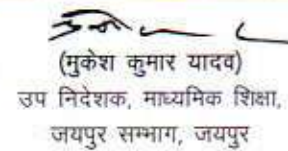 (मुकेश कुमार यादव)
उप निदेशक, माध्यमिक शिक्षा,
जयपुर सम्भाग, जयपुर